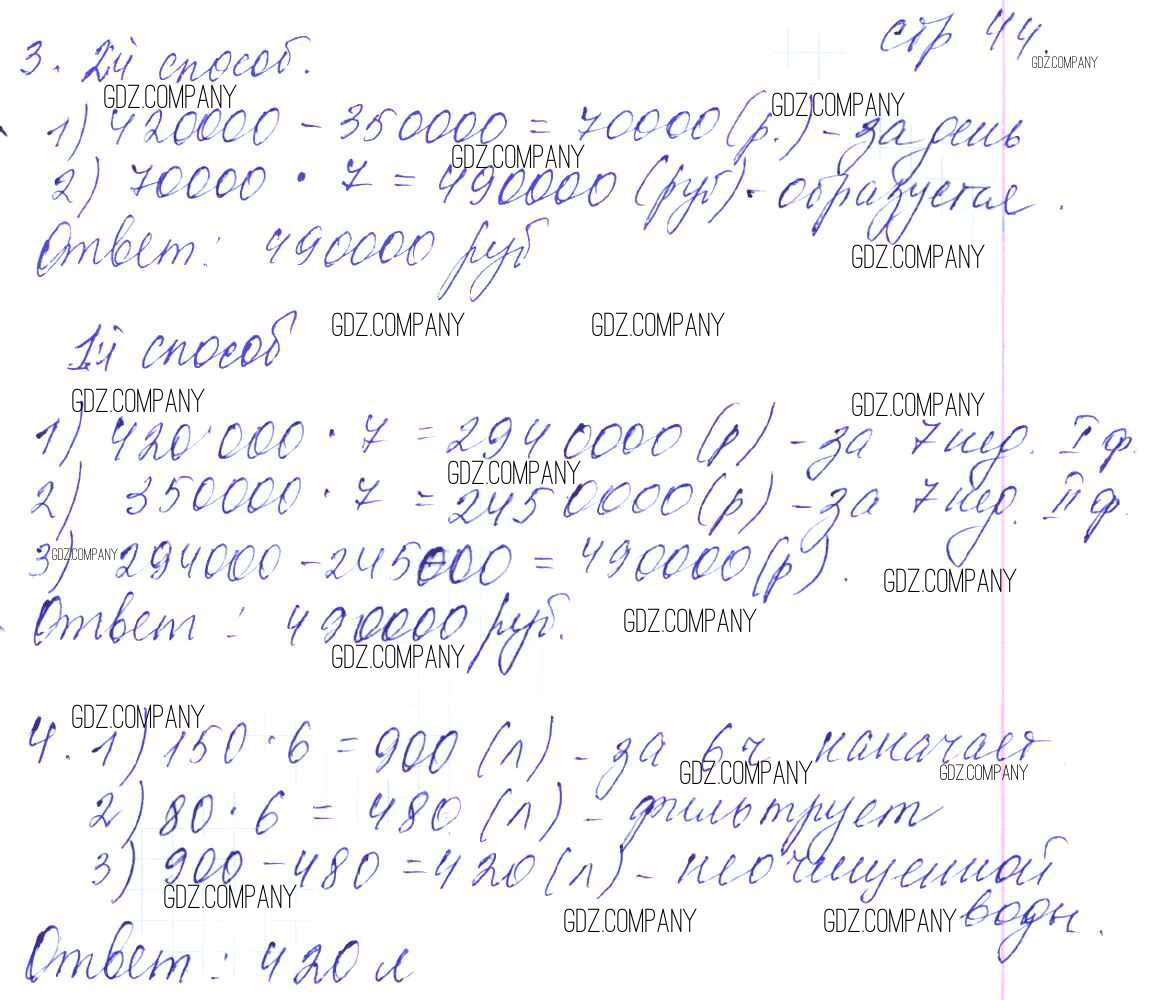 стр 44.
GDZ.COMPANY
3. 2й способ.
GDZ.COMPANY GDZ.COMPANY
1) 420000 - 350000 = 70000 (р.) - за день
GDZ.COMPANY
2) 70000 · 7 = 490000 (руб) - образуется.
Ответ: 490000 руб
GDZ.COMPANY
GDZ.COMPANY GDZ.COMPANY
1й способ
GDZ.COMPANY GDZ.COMPANY
1) 420 000 · 7 = 2940000 (р) - за 7 нед. I ф.
GDZ.COMPANY
2) 350000 · 7 = 2450000 (р) - за 7 нед. II ф.
GDZ.COMPANY
3) 294000 - 245000 = 490000 (р).
GDZ.COMPANY
Ответ: 490000 руб.
GDZ.COMPANY
GDZ.COMPANY
GDZ.COMPANY
4. 1) 150 · 6 = 900 (л) - за 6 ч накачает
GDZ.COMPANY GDZ.COMPANY
2) 80 · 6 = 480 (л) - фильтрует
3) 900 - 480 = 420 (л) - неочищенной
GDZ.COMPANY
воды.
GDZ.COMPANY GDZ.COMPANY
Ответ: 420 л